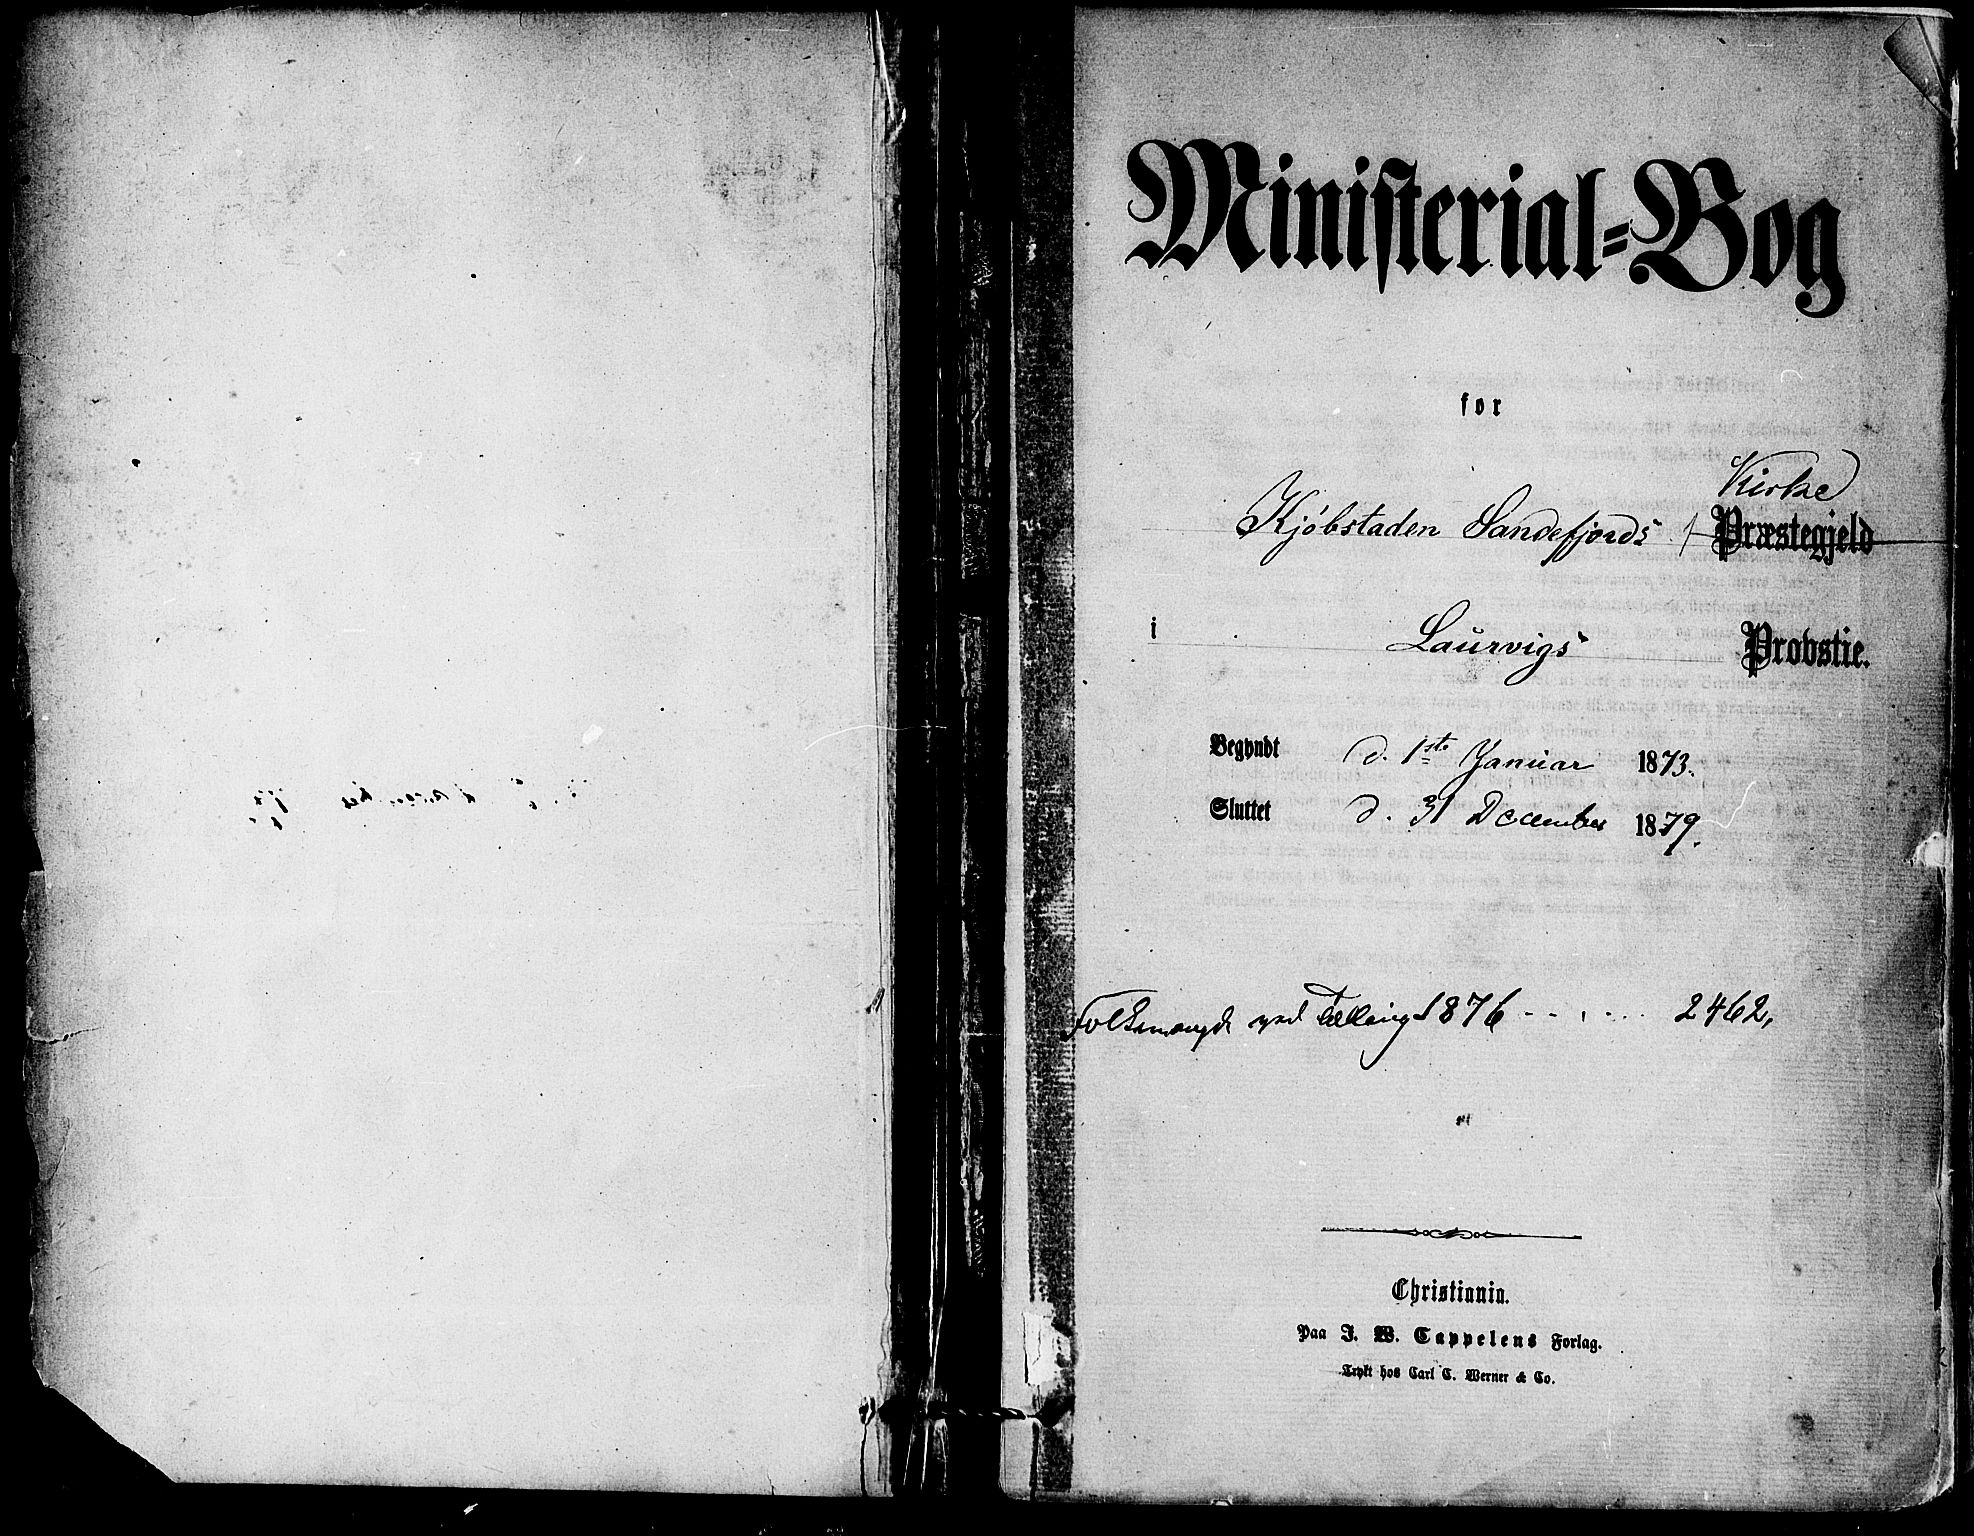 Ministerial-Bog
for
Kirke
Kjöbstaden Sandefjords Præstegjeld
i Laurvigs Provstie.
Begyndt d. 1ste Januar 1873.
Sluttet d. 31 December 1879.
Folkemængde ved Tælling 1876 - - . - - - 2462,
Christiania.
Paa J. W. Cappelens Forlag.
Trykt hos Carl C. Werner & Co.